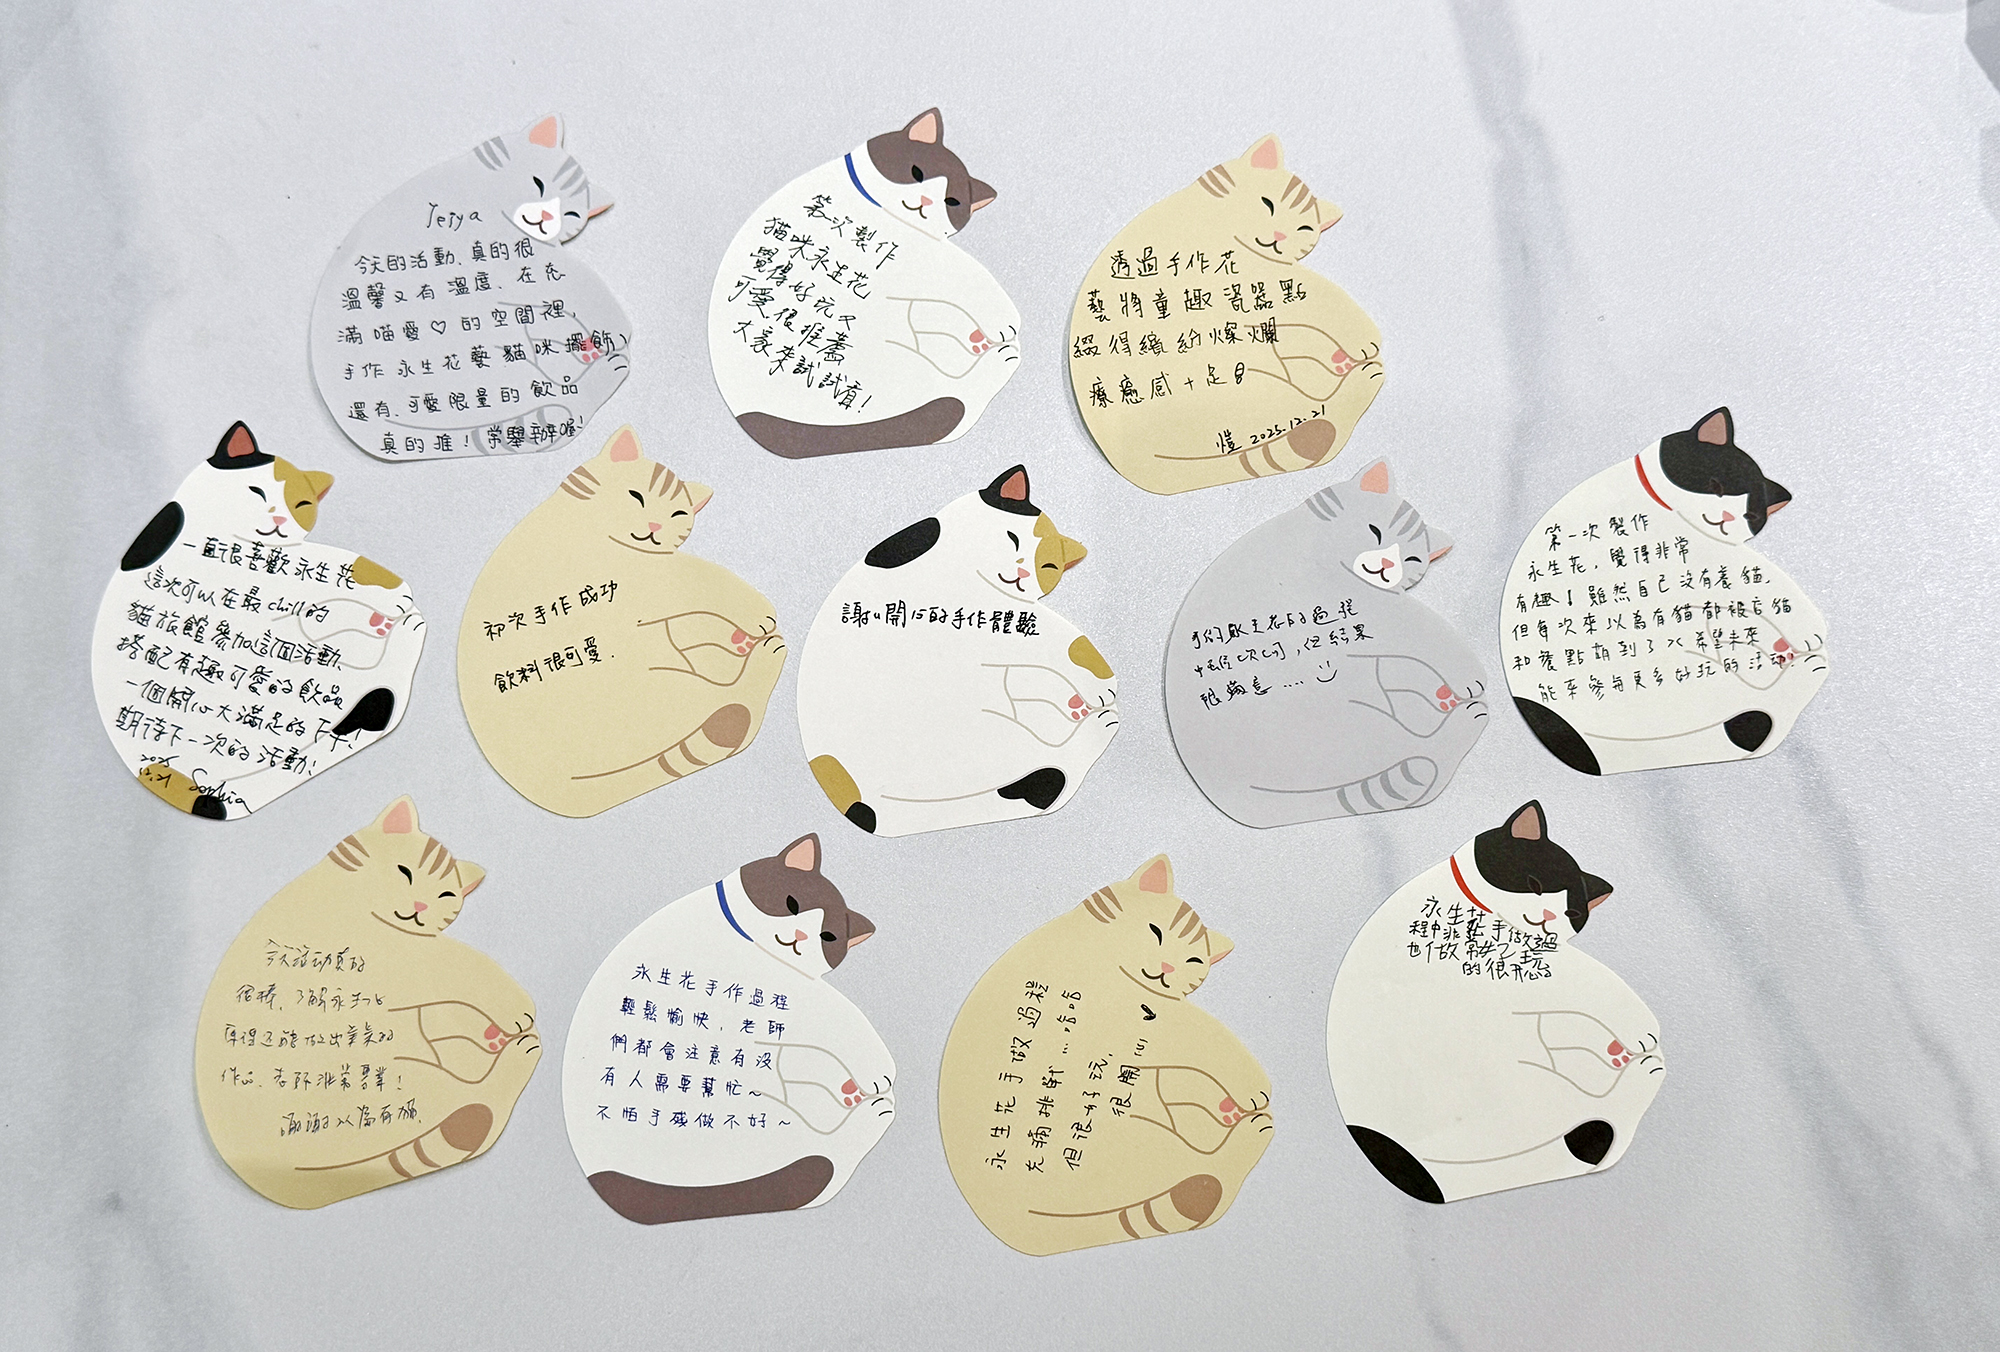 Jeiya
今天的活動、真的很
溫馨又有溫度、在充
滿喵愛♡的空間裡，
手作永生花藝貓咪擺飾
還有、可愛限量的飲品
真的推！常舉辦喔！
第一次製作
貓咪永生花
覺得好玩又
可愛，很推薦
大家來試試看！
透過手作花
藝將童趣瓷器點
綴得繽紛燦爛
療癒感十足
愷 2025.12.21
一直很喜歡永生花
這次可以在最chill的
貓旅館參加這個活動、
搭配有趣可愛的飲品
一個開心大滿足的下午！
期待下一次的活動！
2025
12.21 Sophia
初次手作成功
飲料很可愛.
謝u開心的手作體驗
的過程
，但結果
很滿意....
第一次製作
永生花，覺得非常
有趣！雖然自己沒有養貓，
但每次來以為有貓都被店貓
和餐點萌到了 希望未來
能來參與更多好玩的活動！
今天活动真的
很棒、了解永生花
還能做出美美的
作品、老師非常專業！
謝謝以為有貓.
永生花手作過程
輕鬆愉快，老師
們都會注意有沒
有人需要幫忙～
不怕手殘做不好～
永生花手做過程
充滿挑戰...哈哈哈
但很好玩，
很開心
永生花手做過
程中非常
也做
的很